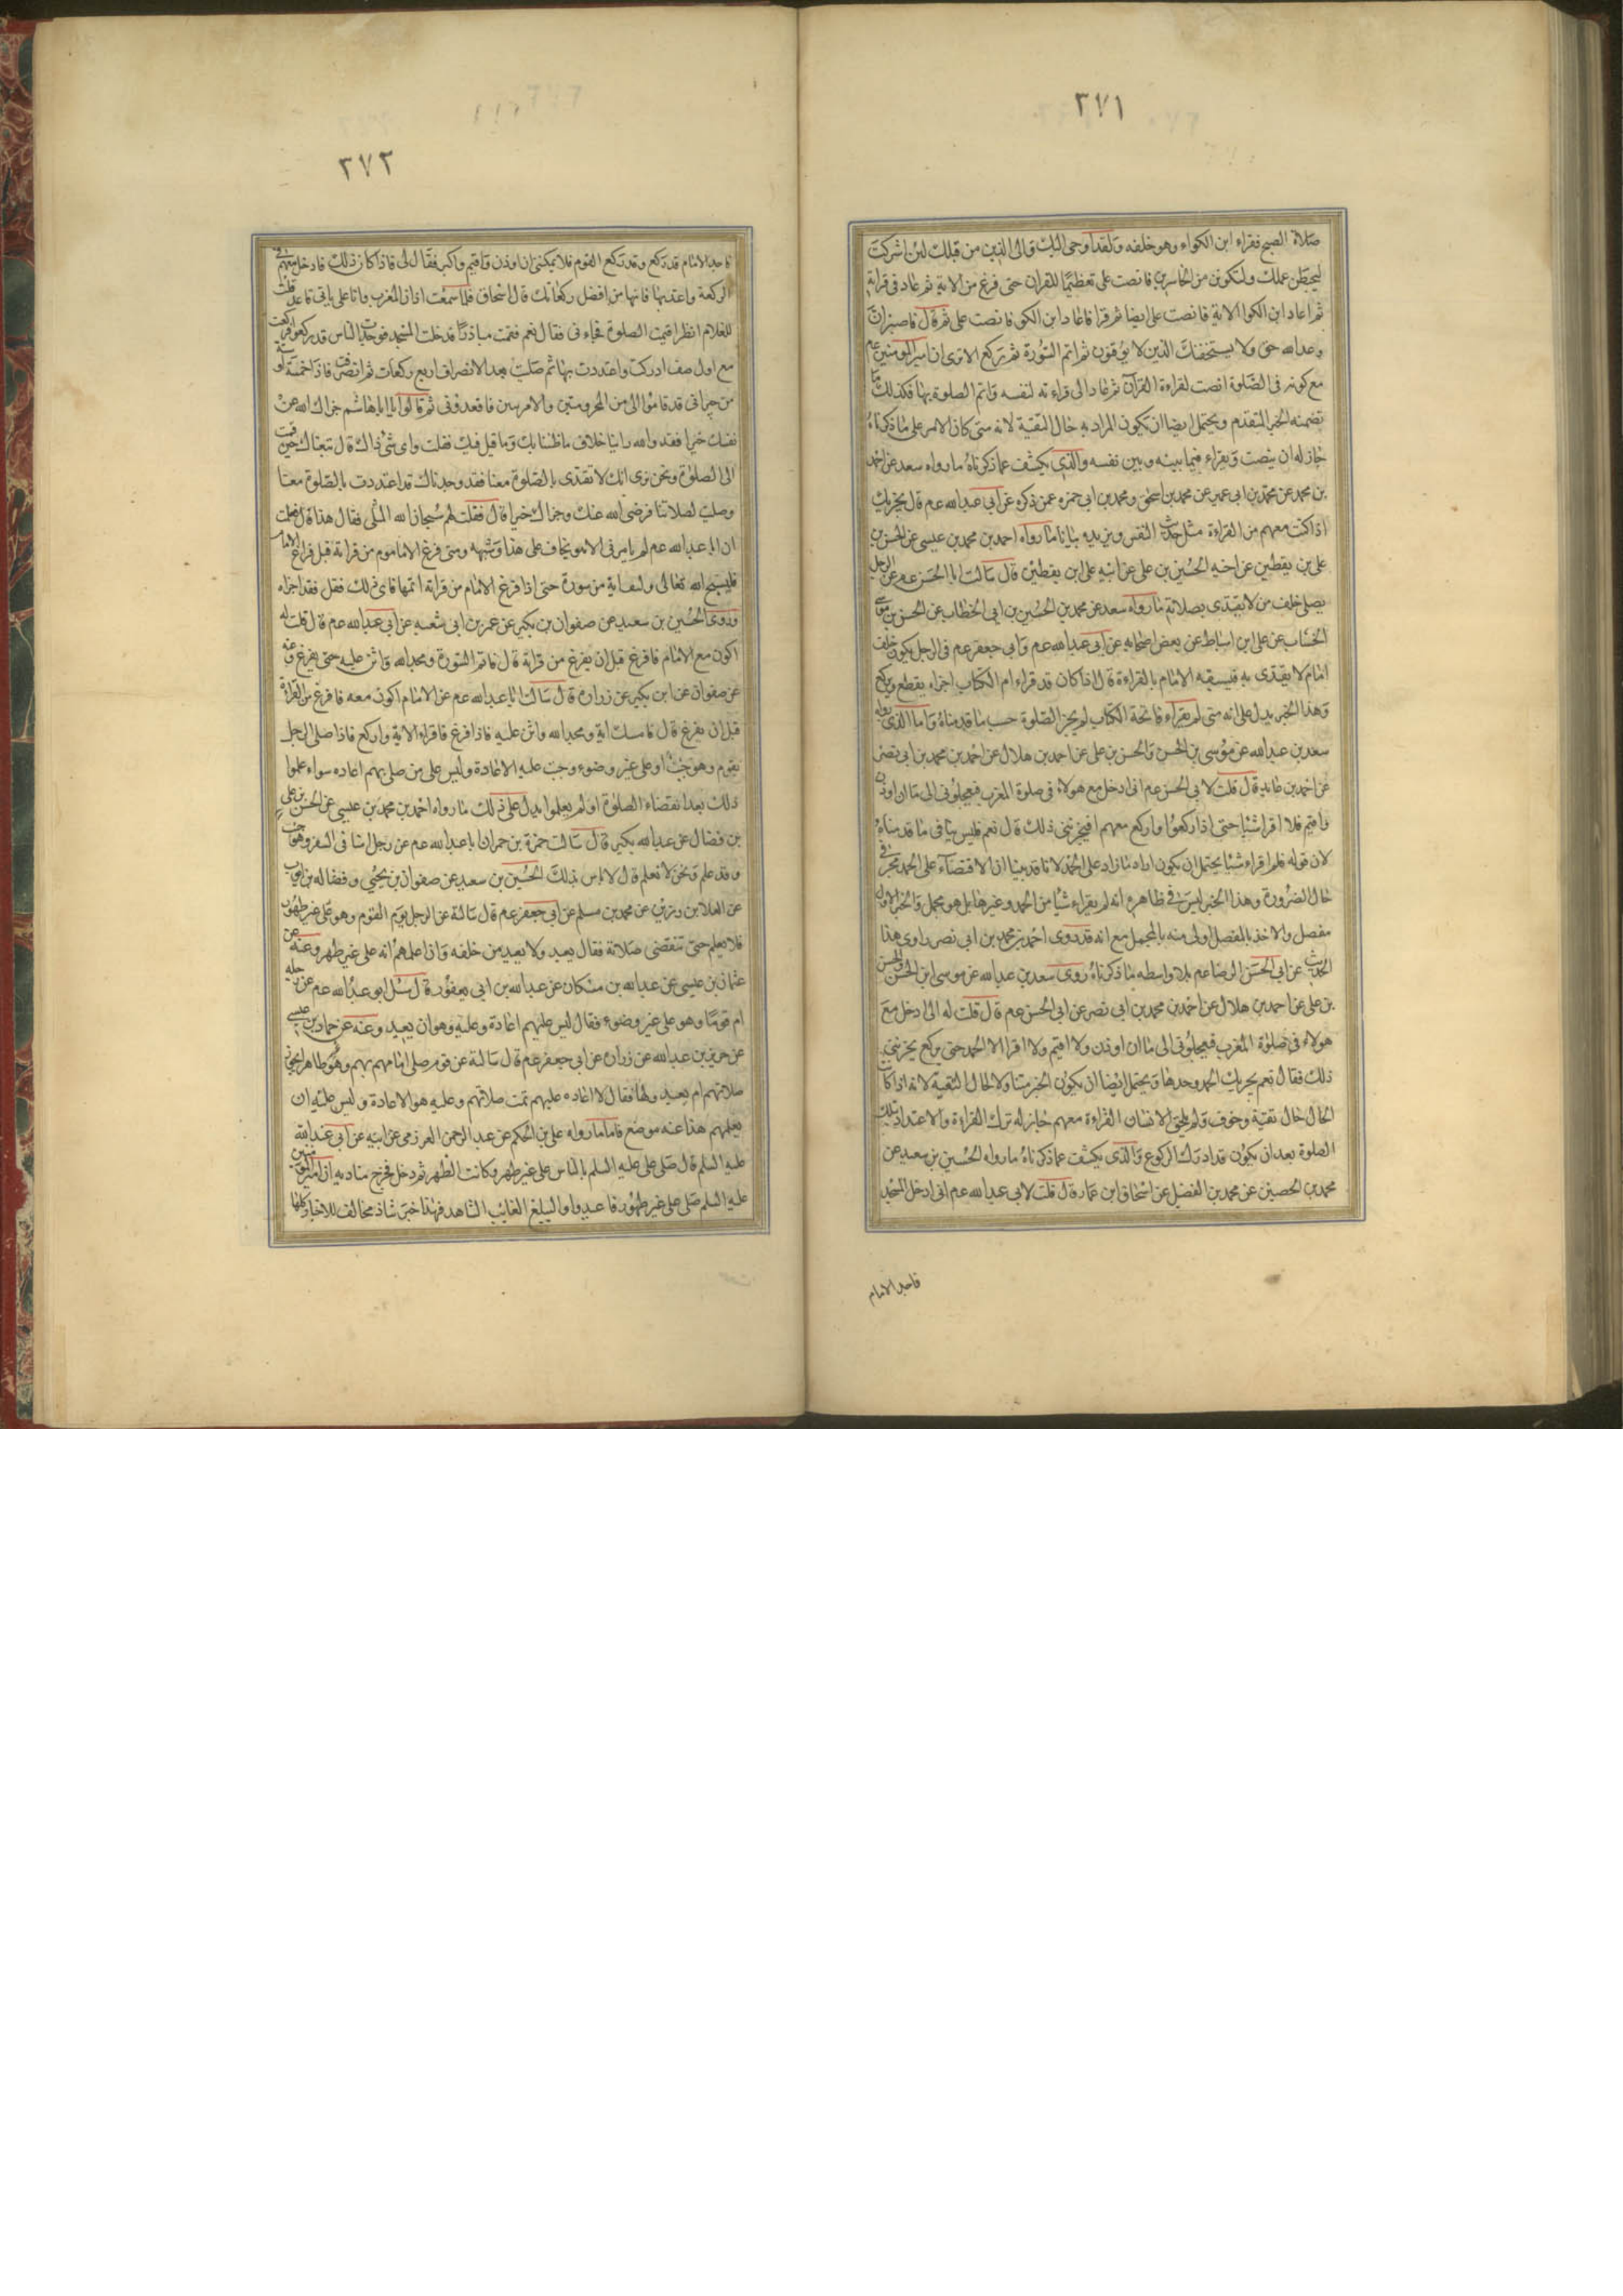 ٢٧١
صلاة الصبح فقراء ابن الكواء وهو خلفه ولقد اوحى اليك والى الذين من قبلك لئن اشركت
ليحبطن عملك ولتكونن من الخاسرين فانصت على تعظيما للقران حتى فرغ من الاية ثم عاد فى قراته
ثم اعاد ابن الكوا الاية فانصت على ايضا ثم قرا فاعاد ابن الكوى فانصت على ثم قال فاصبر ان
وعد الله حق ولا يستخفنك الذين لا يوقنون ثم اتم السورة ثم ركع الا ترى ان امير المومنين عم
مع كونه فى الصلوة انصت لقراءة القرآن ثم عاد الى قراءته لنفسه واتم الصلوة بها فكذلك ما
تضمنه الخبر المتقدم ويحتمل ايضا ان يكون المراد به حال التقية لانه متى كان الامر على ما ذكرناه
جاز له ان ينصت ويقراء فيما بينه وبين نفسه والذى يكشف عما ذكرناه ما رواه سعد عن احمد
بن محمد عن محمد بن ابى عمير عن محمد بن اسحق ومحمد بن ابى حمزه عمن ذكره عن ابى عبدالله عم قال يجزيك
اذا كنت معهم من القراءة مثل حديث النفس ويزيده بيانا ما رواه احمد بن محمد بن عيسى عن الحسن بن
على بن يقطين عن اخيه الحسين بن على عن ابيه على ابن يقطين قال سالت ابا الحسن عم عن الرجل
يصلى خلف من لا يقتدى بصلاته ما رواه سعد عن محمد بن الحسين بن ابى الخطاب عن الحسن بن موسى
الخشاب عن على ابن اسباط عن بعض اصحابه عن ابى عبدالله عم وابى جعفر عم فى الرجل يكون خلف
امام لا يقتدى به فيسبقه الامام بالقراءة قال اذا كان قد قراء ام الكتاب اجزاه يقطع ويركع
وهذا الخبر يدل على انه متى لم يقراء فاتحة الكتاب لم يجز الصلوة حسب ما قدمناه واما الذى رواه
سعد بن عبدالله عن موسى بن الحسن والحسن بن على عن احمد بن هلال عن احمد بن محمد بن ابى نصر
عن احمد بن عايد قال قلت لابى الحسن عم انى ادخل مع هولاء فى صلوة المغرب فيعجلونى الى ما ان اوذن
واقيم فلا اقرا شيئا حتى اذا ركعوا واركع معهم افيجزينى ذلك قال نعم فليس ينافى ما قدمناه
لان قوله فلم اقراء شيئا يحتمل ان يكون اراد ما زاد على الحمد لانا قد بينا ان الاقتصار على الحمد مجز فى
حال الضرورة وهذا الخبر ليس فى ظاهره انه لم يقراء شيئا من الحمد وغيرها بل هو مجمل والخبر الاول
مفصل والاخذ بالمفصل اولى منه بالمجمل مع انه قد روى احمد بن محمد بن ابى نصر راوى هذا
الحديث عن ابى الحسن الرضا عم بلا واسطه ما ذكرناه روى سعد بن عبدالله عن موسى ابن الحسن والحسن
بن على عن احمد بن هلال عن احمد بن محمد بن ابى نصر عن ابى الحسن عم قال قلت له انى ادخل مع
هولاء فى صلوة المغرب فيعجلونى الى ما ان اوذن ولا اقيم ولا اقرا الا الحمد حتى يركع يجزينى
ذلك فقال نعم يجزيك الحمد وحدها ويحتمل ايضا ان يكون الخبر متناولا لحال التقية لانه اذا كان
الحال حال تقية وخوف ولم يلحق الانسان القراءة معهم جاز له ترك القراءة والاعتداد بتلك
الصلوة بعد ان يكون قد ادرك الركوع والذى يكشف عما ذكرناه ما رواه الحسين بن سعيد عن
محمد بن الحصين عن محمد بن الفضيل عن اسحاق ابن عمار قال قلت لابى عبدالله عم انى ادخل المسجد
فاجد الامام
٢٧٢
فاجد الامام قد ركع وقد ركع القوم فلا يمكننى ان اوذن واقيم واكبر فقال لى فاذا كان ذلك فادخل معهم فى
الركعة واعتد بها فانها من افضل ركعاتك قال اسحاق فلما سمعت اذان المغرب وانا على بابى قاعد قلت
للغلام انظر اقيمت الصلوة فجاءنى فقال نعم فقمت مبادرا قد خلت المسجد فوجدت الناس قد ركعوا فركعت
مع اول صف ادركت واعتددت بها ثم صليت بعد الانصراف اربع ركعات ثم انصرفت فاذا خمسة او ستة
من جيرانى قد قاموا الى من المخزوميين والامويين فاقعدونى ثم قالوا يا ابا هاشم جزاك الله عن
نفسك خيرا فقد والله راينا خلاف ما ظننا بك وما قيل فيك فقلت واى شئ ذاك قال تبعناك حين قمت
الى الصلوة ونحن نرى انك لا تقتدى بالصلوة معنا فقد وجدناك قد اعتددت بالصلوة معنا
وصليت لصلاتنا فرضى الله عنك وجزاك خيرا قال فقلت لهم سبحان الله المثلى فقال هذا قال فعلمت
ان ابا عبدالله عم لم يامرنى الا وهو يخاف على هذا وشبهه ومتى فرغ الماموم من قراته قبل فراغ الامام
فليسبح الله تعالى وليبق اية من سورة حتى اذا فرغ الامام من قراته اتمها فاى ذلك فعل فقد اجزاه
وروى الحسين بن سعيد عن صفوان بن بكير عن عمر بن ابى شعبه عن ابى عبدالله عم قال قلت له
اكون مع الامام فافرغ قبل ان يفرغ من قراته قال فاتم السورة ومجد الله واثن عليه حتى يفرغ وعنه
عن صفوان عن ابن بكير عن زراره قال سالت ابا عبدالله عم عن الامام اكون معه فافرغ من القراة
قبل ان يفرغ قال فامسك اية ومجد الله واثن عليه فاذا فرغ فاقراء الاية واركع فاذا صلى الرجل
بقوم وهو جنب او على غير وضوء وجبت عليه الاعادة وليس على من صلى بهم اعاده سواء علموا
ذلك بعد انقضاء الصلوة او لم يعلموا يدل على ذلك ما رواه احمد بن محمد بن عيسى عن الحسن بن على
بن فضال عن عبدالله بكير قال سالت حمزة بن حمران ابا عبدالله عم عن رجل امنا فى السفر وهو جنب
وقد علم ونحن لا نعلم قال لا باس ذلك الحسين بن سعيد عن صفوان بن يحيى وفضاله بن ايوب
عن العلا بن رزين عن محمد بن مسلم عن ابى جعفر عم قال سالته عن الرجل يوم القوم وهو على غير طهور
فلا يعلم حتى تنقضى صلاته فقال يعيد ولا يعيد من خلفه وان اعلمهم انه على غير طهر وعنه عن
عثمان بن عيسى عن عبدالله بن مسكان عن عبدالله بن ابى يعفور قال سئل ابو عبدالله عم عن رجل
ام قوما وهو على غير وضوء فقال ليس عليهم اعادة وعليه وهو ان يعيد وعنه عن حماد بن عيسى
عن حريز بن عبدالله عن زراره عن ابى جعفر عم قال سالته عن قوم صلى امامهم بهم وهو غير طاهر ايجزى
صلاتهم ام يعيدونها فقال لا اعاده عليهم تمت صلاتهم وعليه هو الاعادة وليس عليه ان
يعلمهم هذا عنه موضع فاما ما رواه على بن الحكم عن عبد الرحمن العرزمى عن ابيه عن ابى عبدالله
عليه السلم قال صلى على عليه السلم بالناس على غير طهر وكانت الظهر ثم دخل فخرج مناديه ان امير المومنين
عليه السلم صلى على غير طهور فاعيدوا واليبلغ الغايب الشاهد فهذا خبر شاذ مخالف للاخبار كلها